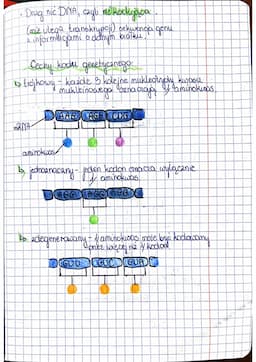 Drugą nić DNA, czyli niekodująca
(nie ulega transkrypcji) sekwencja genu
z informacjami o danym białku.
Cechy kodu genetycznego:
trójkowy - każde 3 kolejne nukleotydy kwasu
nukleinowego oznaczają 1 aminokwas
mRNA
aminokwas
jednoznaczny - jeden kodon oznacza wyłącznie
1 aminokwas
zdegenerowany - 1 aminokwas może być kodowany
przez więcej niż 1 kodon
GUU GUC GUA